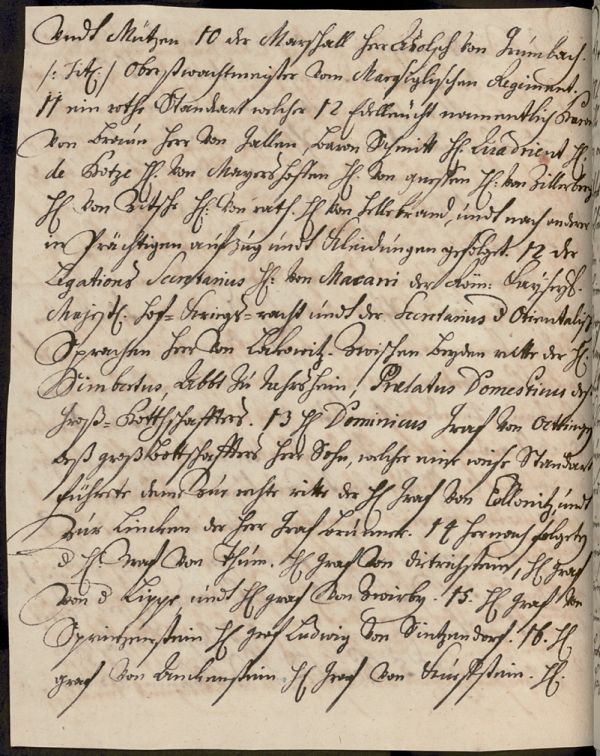 Undt Mützen 10 der Marschall Herr Adolph Von Grimbach.
/: Tit: / Obristwachtmeister Vom Marsiglischen Regiment.
11 ein rothe Standart welcher 12 Edelleücht nomentlich Baron
Von Breün Herr Von Gallen, Baron Schmitt H: Quadrient H:
de Botze H: Von Mayershoffen H: Von H: Von Zillerberg
H: Von H: Von rath. H: Von Hellebrand, undt noch andere
in Prächtigen auffzug undt Kleidungen gefolget. 12 der
Legations Secretarius H: Von Macani der Röm: Kayserl:
Mayest: Hof-Kriegs-racht undt der Secretarius d Orientalis:
Sprachen Herr Von Lakowitz. Zwischen beyden ritte der H:
Simbertus, Abbt Zu Prælatus Domesticus deß
Groß-Botthschaffters. 13 H: Dominicus Graf Von Oettingen
deß großbottschaffters Herr Sohn, welcher eine weise Standart
führete deme Zur rechte ritte der H: Graf Von Collonitz, undt
Zur Lincken der Herr Graf Brünner. 14 Hernach folgeten
d H: Graf Von Thürn. H: Graf Von Dietrichstein, H: Graf
Von d Lippe, undt H: graf Von 15. H: Graf Von
Sprinzenstein H: graf Ludwig Von Sintzendorf. 16. H:
graf Von Kuckenstein H: Graf Von Fürstenstein. H: